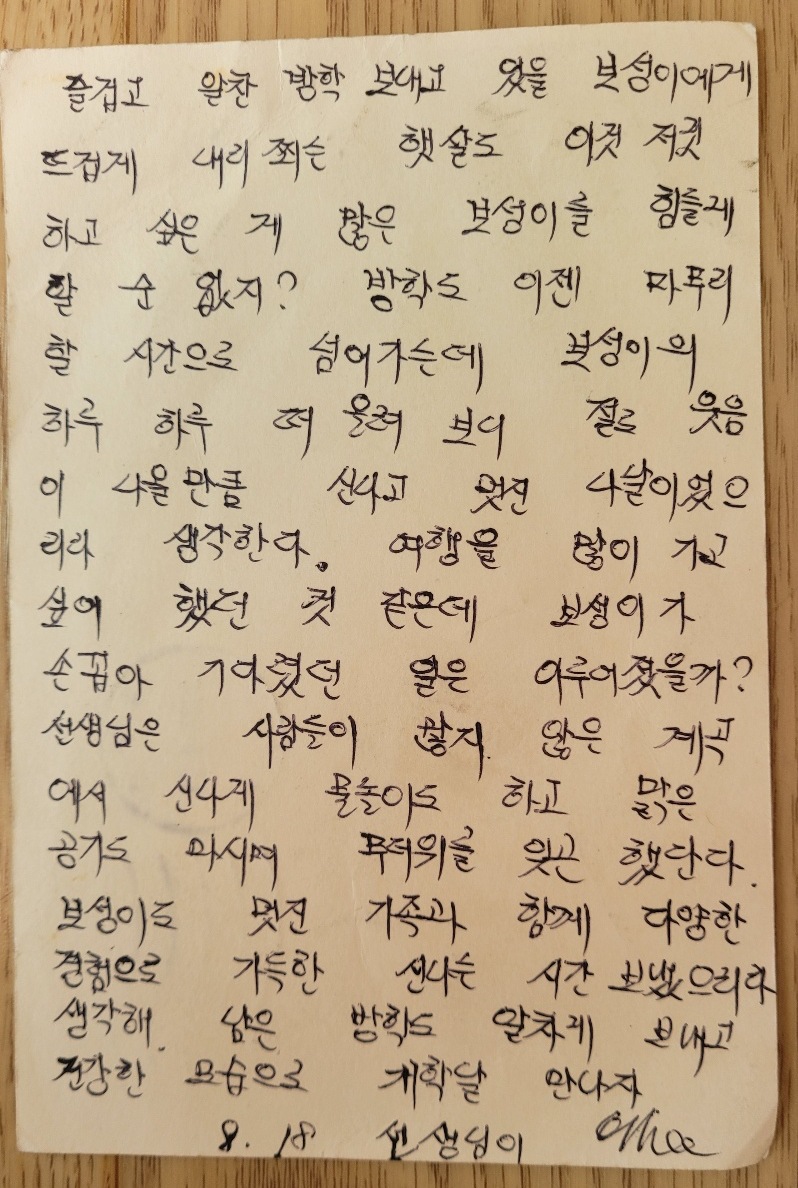 즐겁고 알찬 방학 보내고 있을 보성이에게
뜨겁게 내리 쬐는 햇살도 이것 저것
하고 싶은 게 많은 보성이를 힘들게
할 순 없지? 방학도 이젠 마무리
할 시간으로 넘어가는데 보성이의
하루 하루 떠 올려 보니 절로 웃음
이 나올 만큼 신나고 멋진 나날이었으
리라 생각한다. 여행을 많이 가고
싶어 했던 것 같은데 보성이가
손꼽아 기다렸던 일은 이루어졌을까?
선생님은 사람들이 많지 않은 계곡
에서 신나게 물놀이도 하고 맑은
공기도 마시며 무더위를 잊곤 했단다.
보성이도 멋진 가족과 함께 다양한
경험으로 가득한 신나는 시간 보냈으리라
생각해. 남은 방학도 알차게 보내고
건강한 모습으로 개학날 만나자
8. 18 선생님이